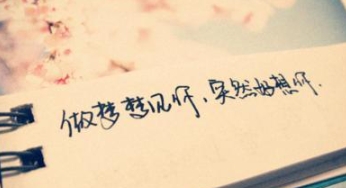 做梦梦见你、突然好想你.